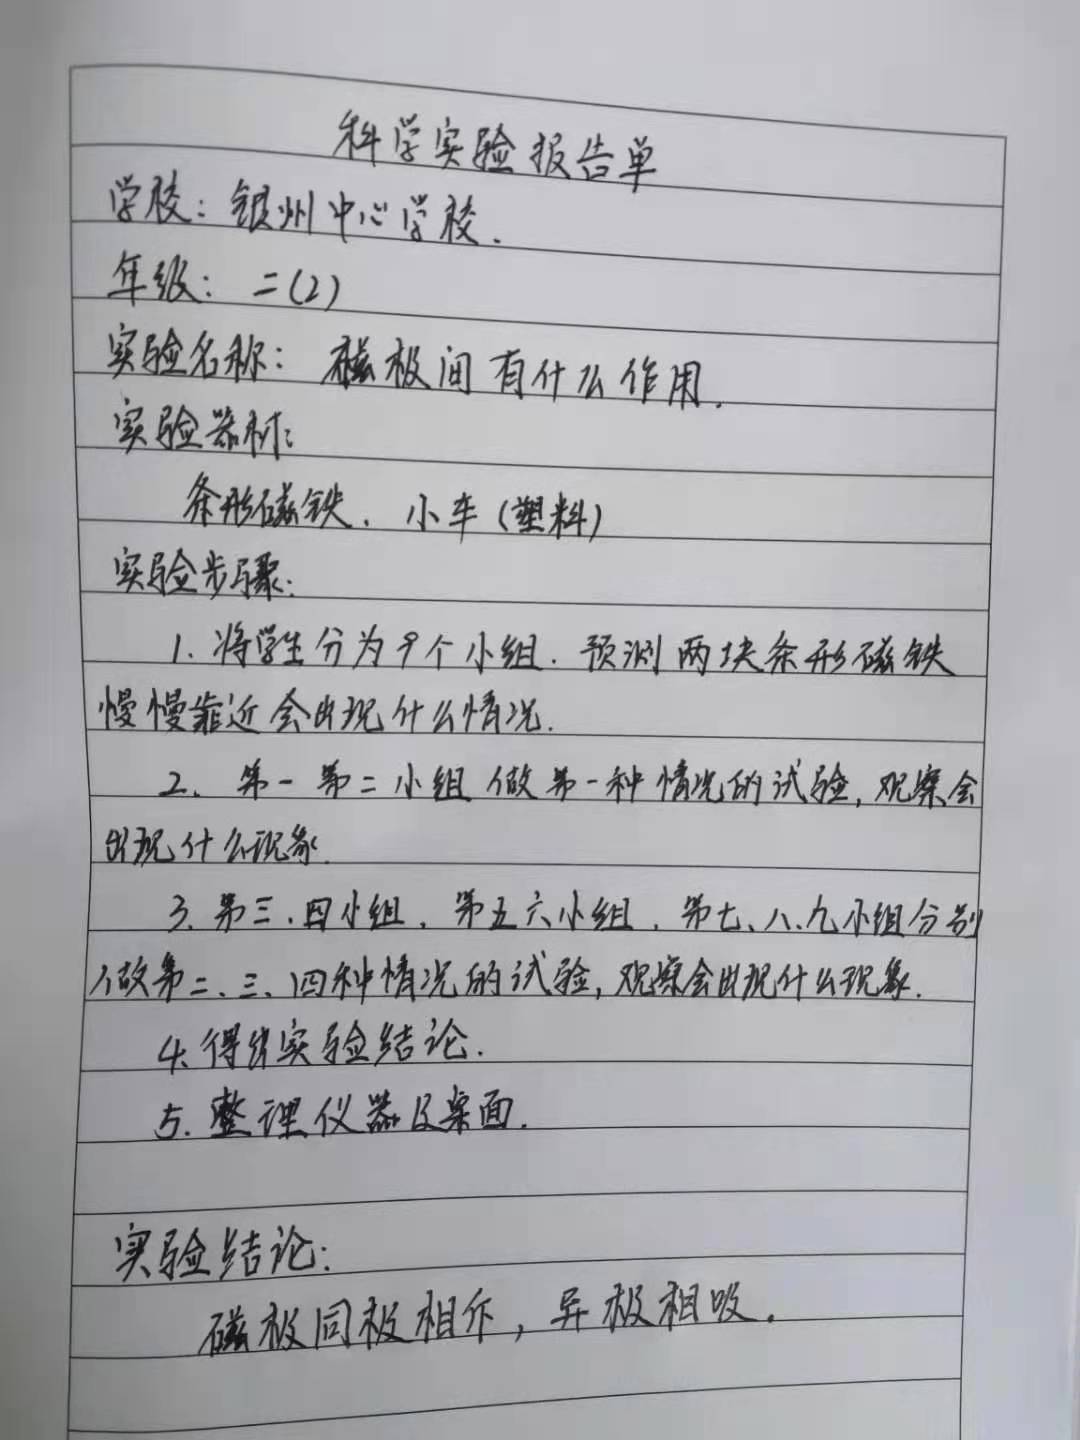 科学实验报告单
学校：银州中心学校.
年级：二(2)
实验名称：磁极间有什么作用.
实验器材：
条形磁铁、小车(塑料)
实验步骤：
1. 将学生分为9个小组. 预测两块条形磁铁
慢慢靠近会出现什么情况.
2. 第一第二小组做第一种情况的试验, 观察会
出现什么现象.
3. 第三、四小组, 第五六小组, 第七、八、九小组分别
做第二、三、四种情况的试验, 观察会出现什么现象.
4. 得出实验结论.
5. 整理仪器及桌面.
实验结论：
磁极同极相斥, 异极相吸.